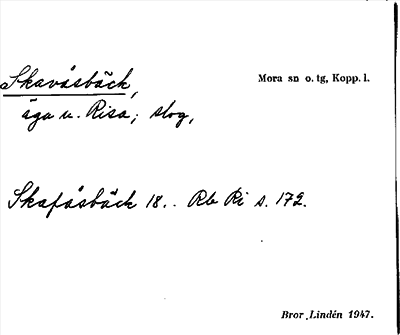 Skavåsbäck, Mora sn o. tg, Kopp. l.
äga u. Risa; skog,
Skafåsbäck 18.. Rb Ri s. 172.
Bror Lindén 1947.